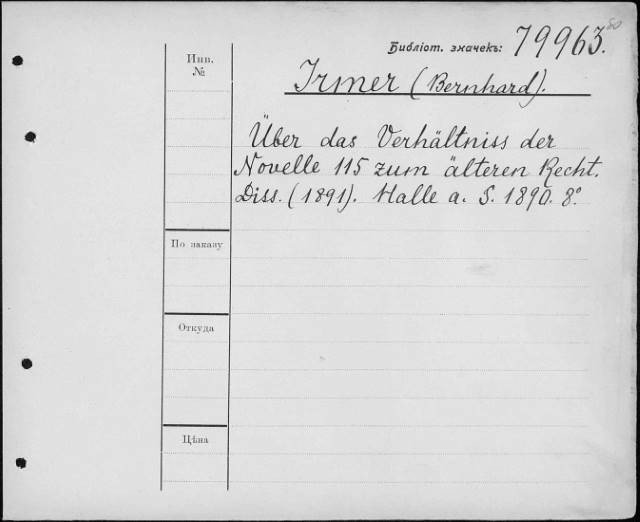 80
Библіот. значекъ: 79963.
Инв.
№
Irmer (Bernhard).
Über das Verhältniss der
Novelle 115 zum älteren Recht.
Diss. (1891). Halle a. S. 1890. 8º.
По заказу
Откуда
Цѣна